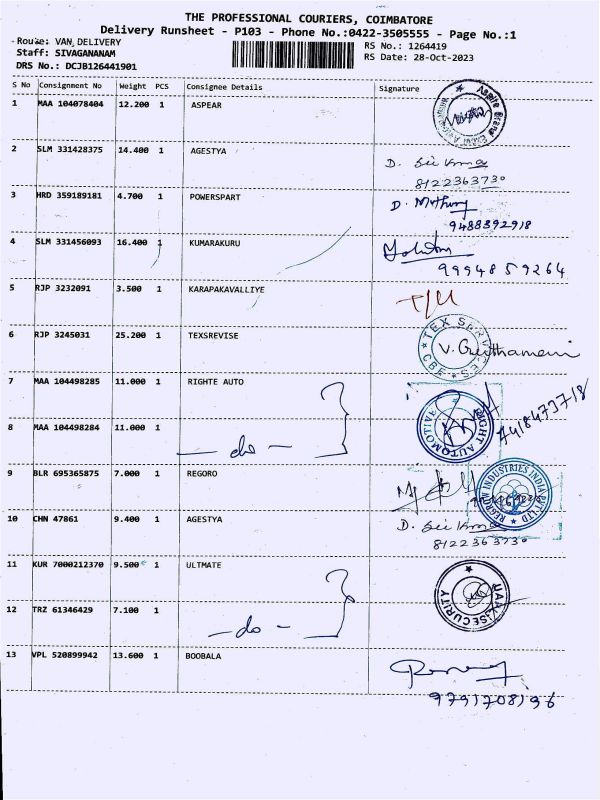 THE PROFESSIONAL COURIERS, COIMBATORE
Delivery Runsheet - P103 - Phone No.:0422-3505555 - Page No.:1
Route: VAN DELIVERY
RS No.: 1264419
Staff: SIVAGANANAM
RS Date: 28-Oct-2023
DRS No.: DCJB126441901
S No Consignment No Weight PCS Consignee Details Signature
1 MAA 104078404 12.200 1 ASPEAR
2 SLM 331428375 14.400 1 AGESTYA
8122363730
3 HRD 359189181 4.700 1 POWERSPART
9488392918
4 SLM 331456093 16.400 1 KUMARAKURU
9994859264
5 RJP 3232091 3.500 1 KARAPAKAVALLIYE
6 RJP 3245031 25.200 1 TEXSREVISE TEX SERVICES CBE
7 MAA 104498285 11.000 1 RIGHTE AUTO RIGHT AUTOMOTIVE
7418473718
8 MAA 104498284 11.000 1 - do -
9 BLR 695365875 7.000 1 REGORO REGROW INDUSTRIES INDIA PVT LTD
10 CHN 47861 9.400 1 AGESTYA
8122363730
11 KUR 7000212370 9.500 1 ULTMATE SECURITY
12 TRZ 61346429 7.100 1 - do -
13 VPL 520899942 13.600 1 BOOBALA
9791708196